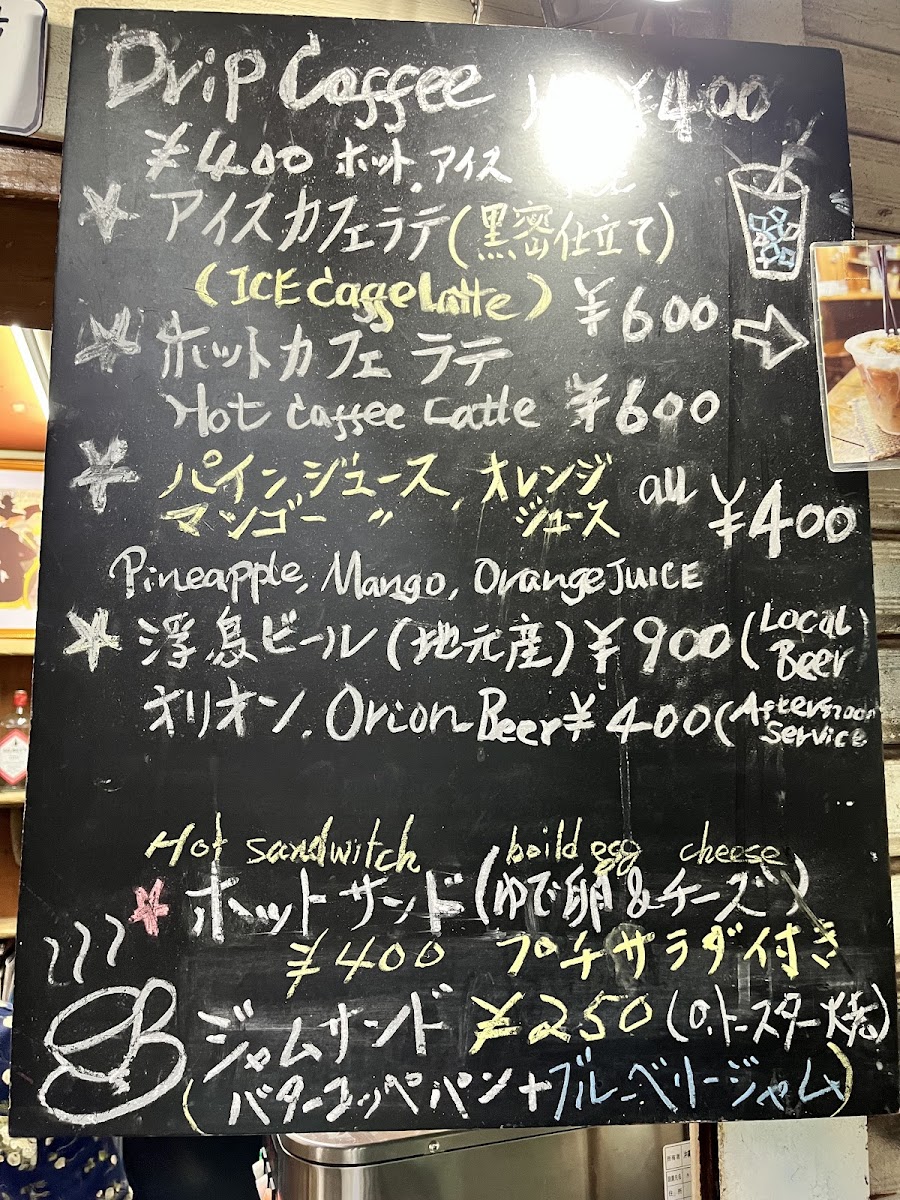 Drip Coffee ¥400
¥400 ホット.アイス
アイスカフェラテ(黒密仕立て)
(ICE caffe Latte) ¥600
ホットカフェ ラテ
Hot caffee Latte ¥600
パインジュース, オレンジ all ¥400
マンゴー 〃 ジュース
Pineapple, Mango, Orange JUICE
浮島ビール(地元産)¥900(Local Beer)
オリオン. Orion Beer ¥400(Afternoon Service
Hot sandwitch boild egg cheese
ホットサンド(ゆで卵&チーズ)
¥400 プチサラダ付き
ジャムサンド ¥250(O.トースター焼)
(バターコッペパン+ブルーベリージャム)